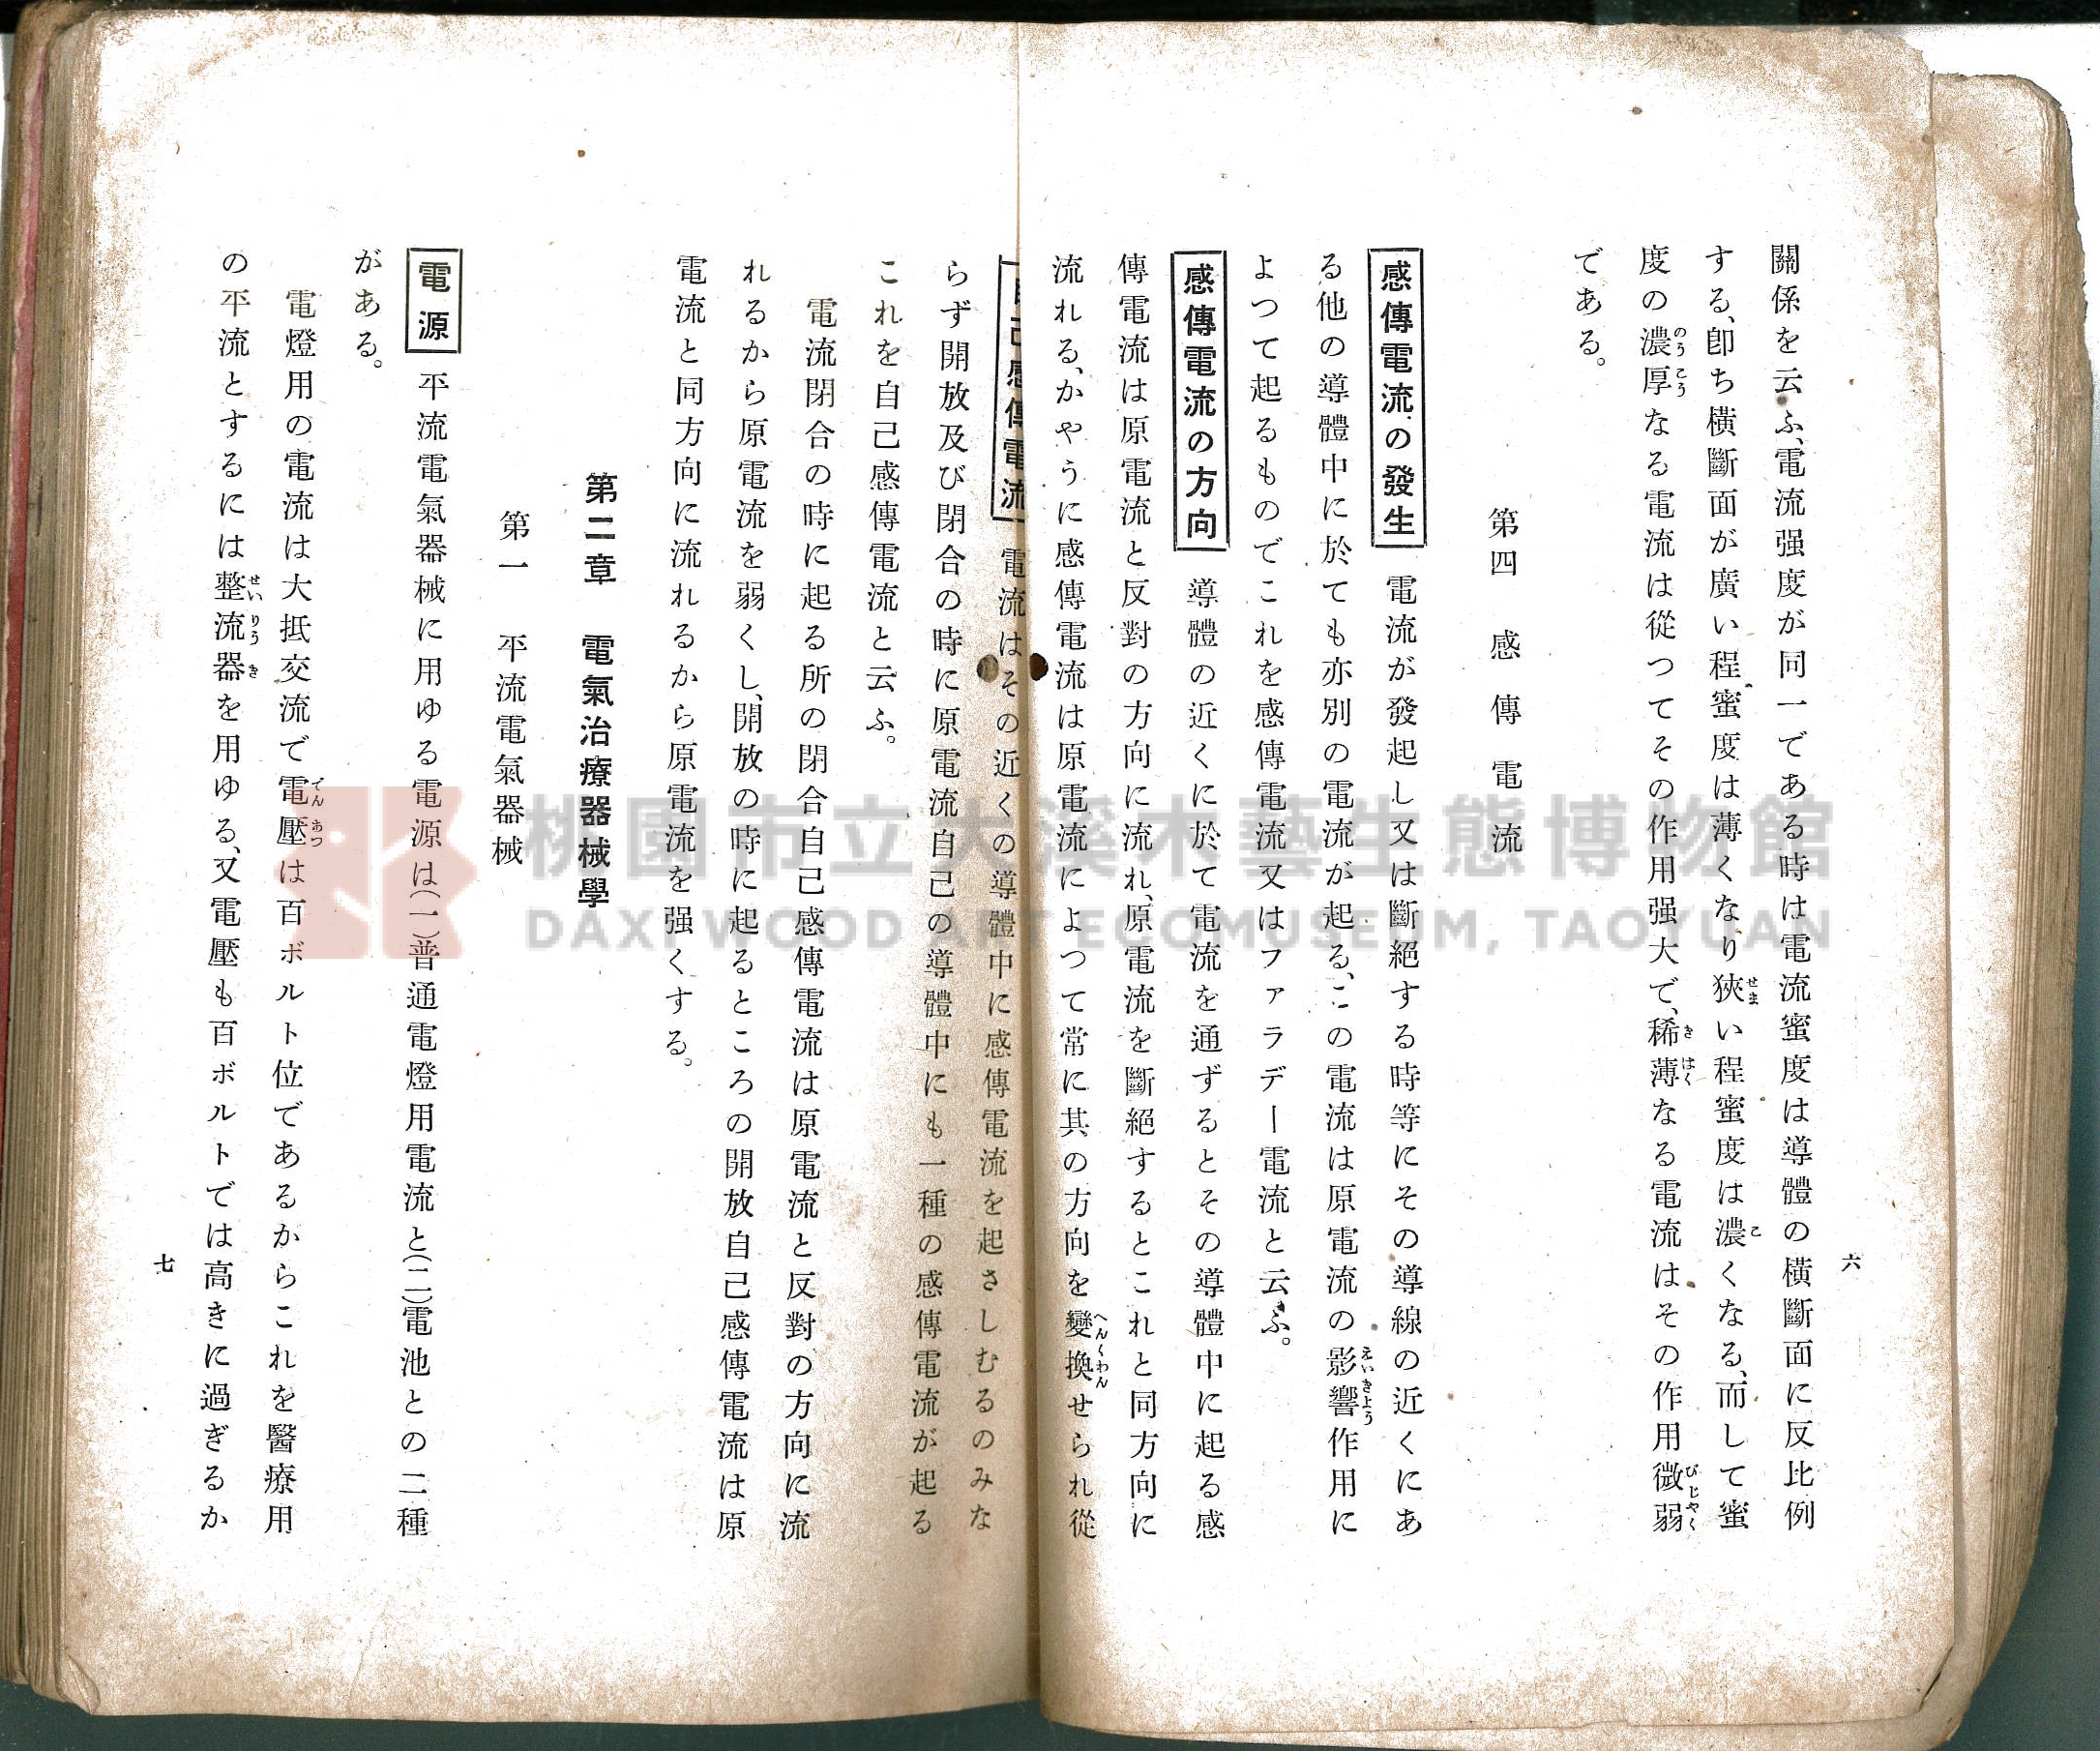 六
關係を云ふ、電流强度が同一である時は電流蜜度は導體の橫斷面に反比例
する、卽ち橫斷面が廣い程蜜度は薄くなり狹い程蜜度は濃くなる、而して蜜
度の濃厚なる電流は從つてその作用强大で、稀薄なる電流はその作用微弱
である。
第四 感傳電流
感傳電流の發生 電流が發起し又は斷絕する時等にその導線の近くにあ
る他の導體中に於ても亦別の電流が起る、この電流は原電流の影響作用に
よつて起るものでこれを感傳電流又はファラデー電流と云ふ。
感傳電流の方向 導體の近くに於て電流を通ずるとその導體中に起る感
傳電流は原電流と反對の方向に流れ、原電流を斷絕するとこれと同方向に
流れる、かやうに感傳電流は原電流によつて常に其の方向を變換せられ從
自己感傳電流 電流はその近くの導體中に感傳電流を起さしむるのみな
らず開放及び閉合の時に原電流自己の導體中にも一種の感傳電流が起る
これを自己感傳電流と云ふ。
電流閉合の時に起る所の閉合自己感傳電流は原電流と反對の方向に流
れるから原電流を弱くし、開放の時に起るところの開放自己感傳電流は原
電流と同方向に流れるから原電流を强くする。
第二章 電氣治療器械學
第一 平流電氣器械
電源 平流電氣器械に用ゆる電源は(一)普通電燈用電流と(二)電池との二種
がある。
電燈用の電流は大抵交流で電壓は百ボルト位であるからこれを醫療用
の平流とするには整流器を用ゆる、又電壓も百ボルトでは高きに過ぎるか
七
桃園市立大溪木藝生態博物館
DAXI WOOD ART ECOMUSEUM, TAOYUAN